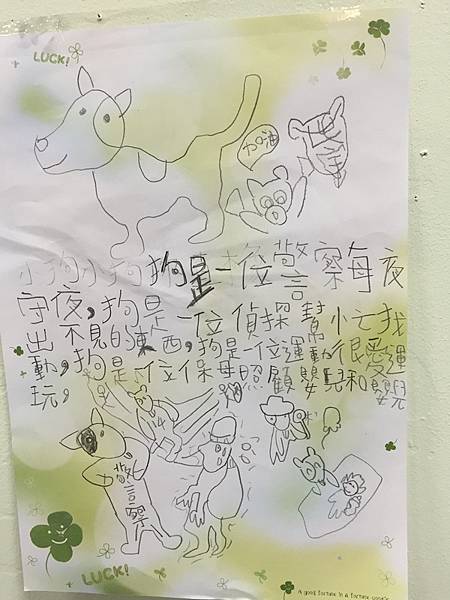 LUCK!
加油
小狗小狗狗是一位警察每夜
守夜,狗是一位偵探幫小七找
出不見的東西,狗是一位運動很愛運
動,狗是一位保母照顧嬰兒和嬰兒
玩。
14
警察
LUCK!
A good fortune in a fortune